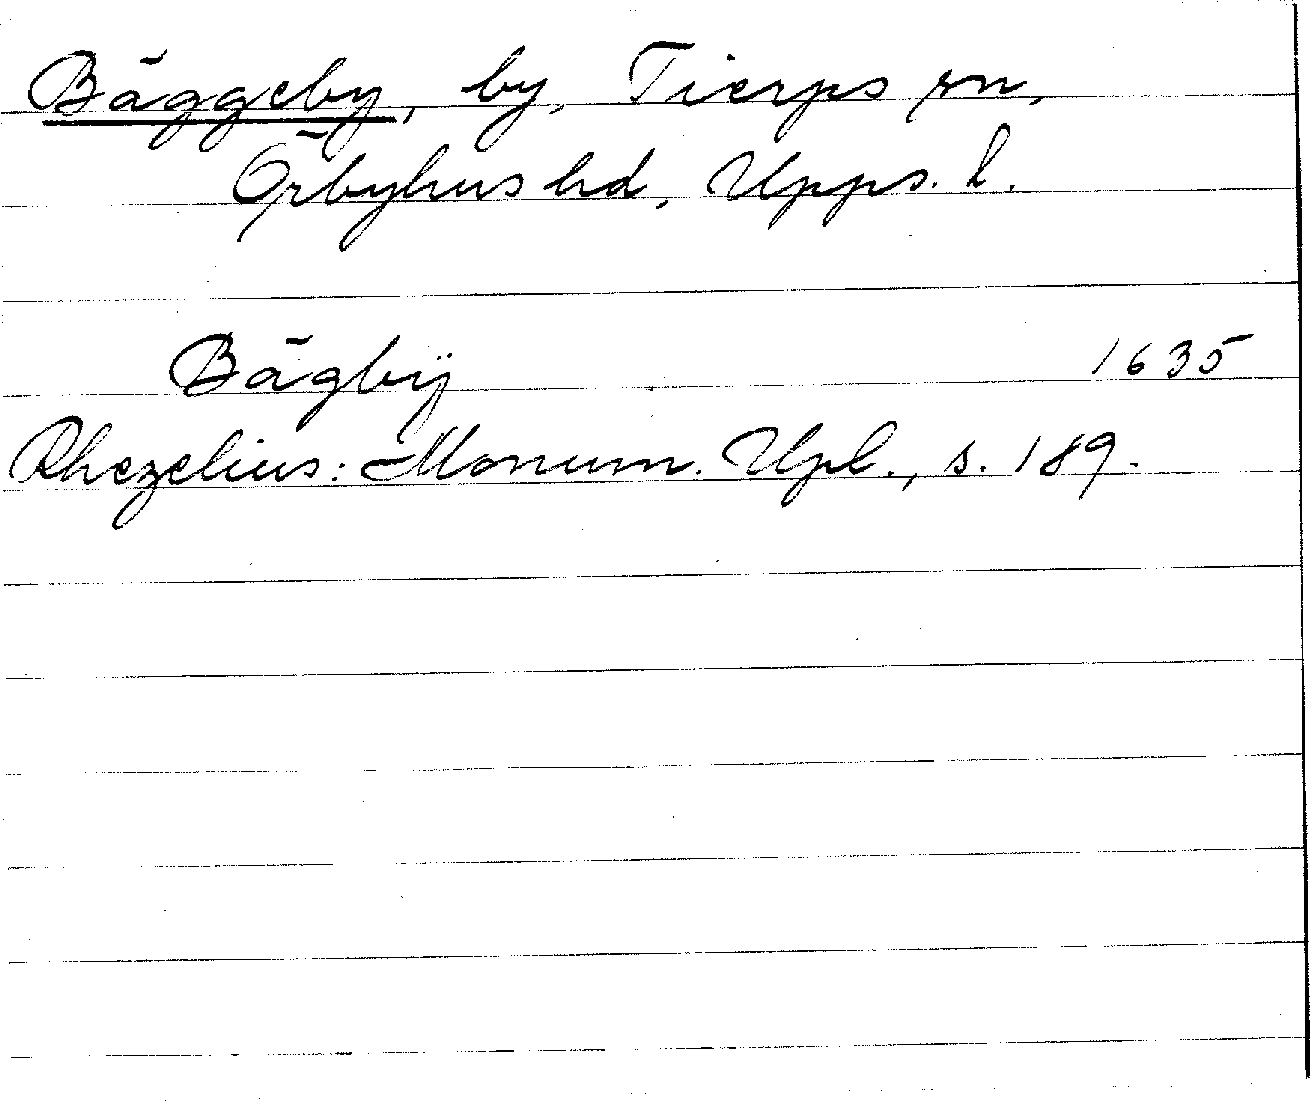 Bäggeby, by, Tierps sn,
Örbyhus hd, Upps. l.
Bägbÿ 1635
Rhezelius: Monum. Upl., s. 189.